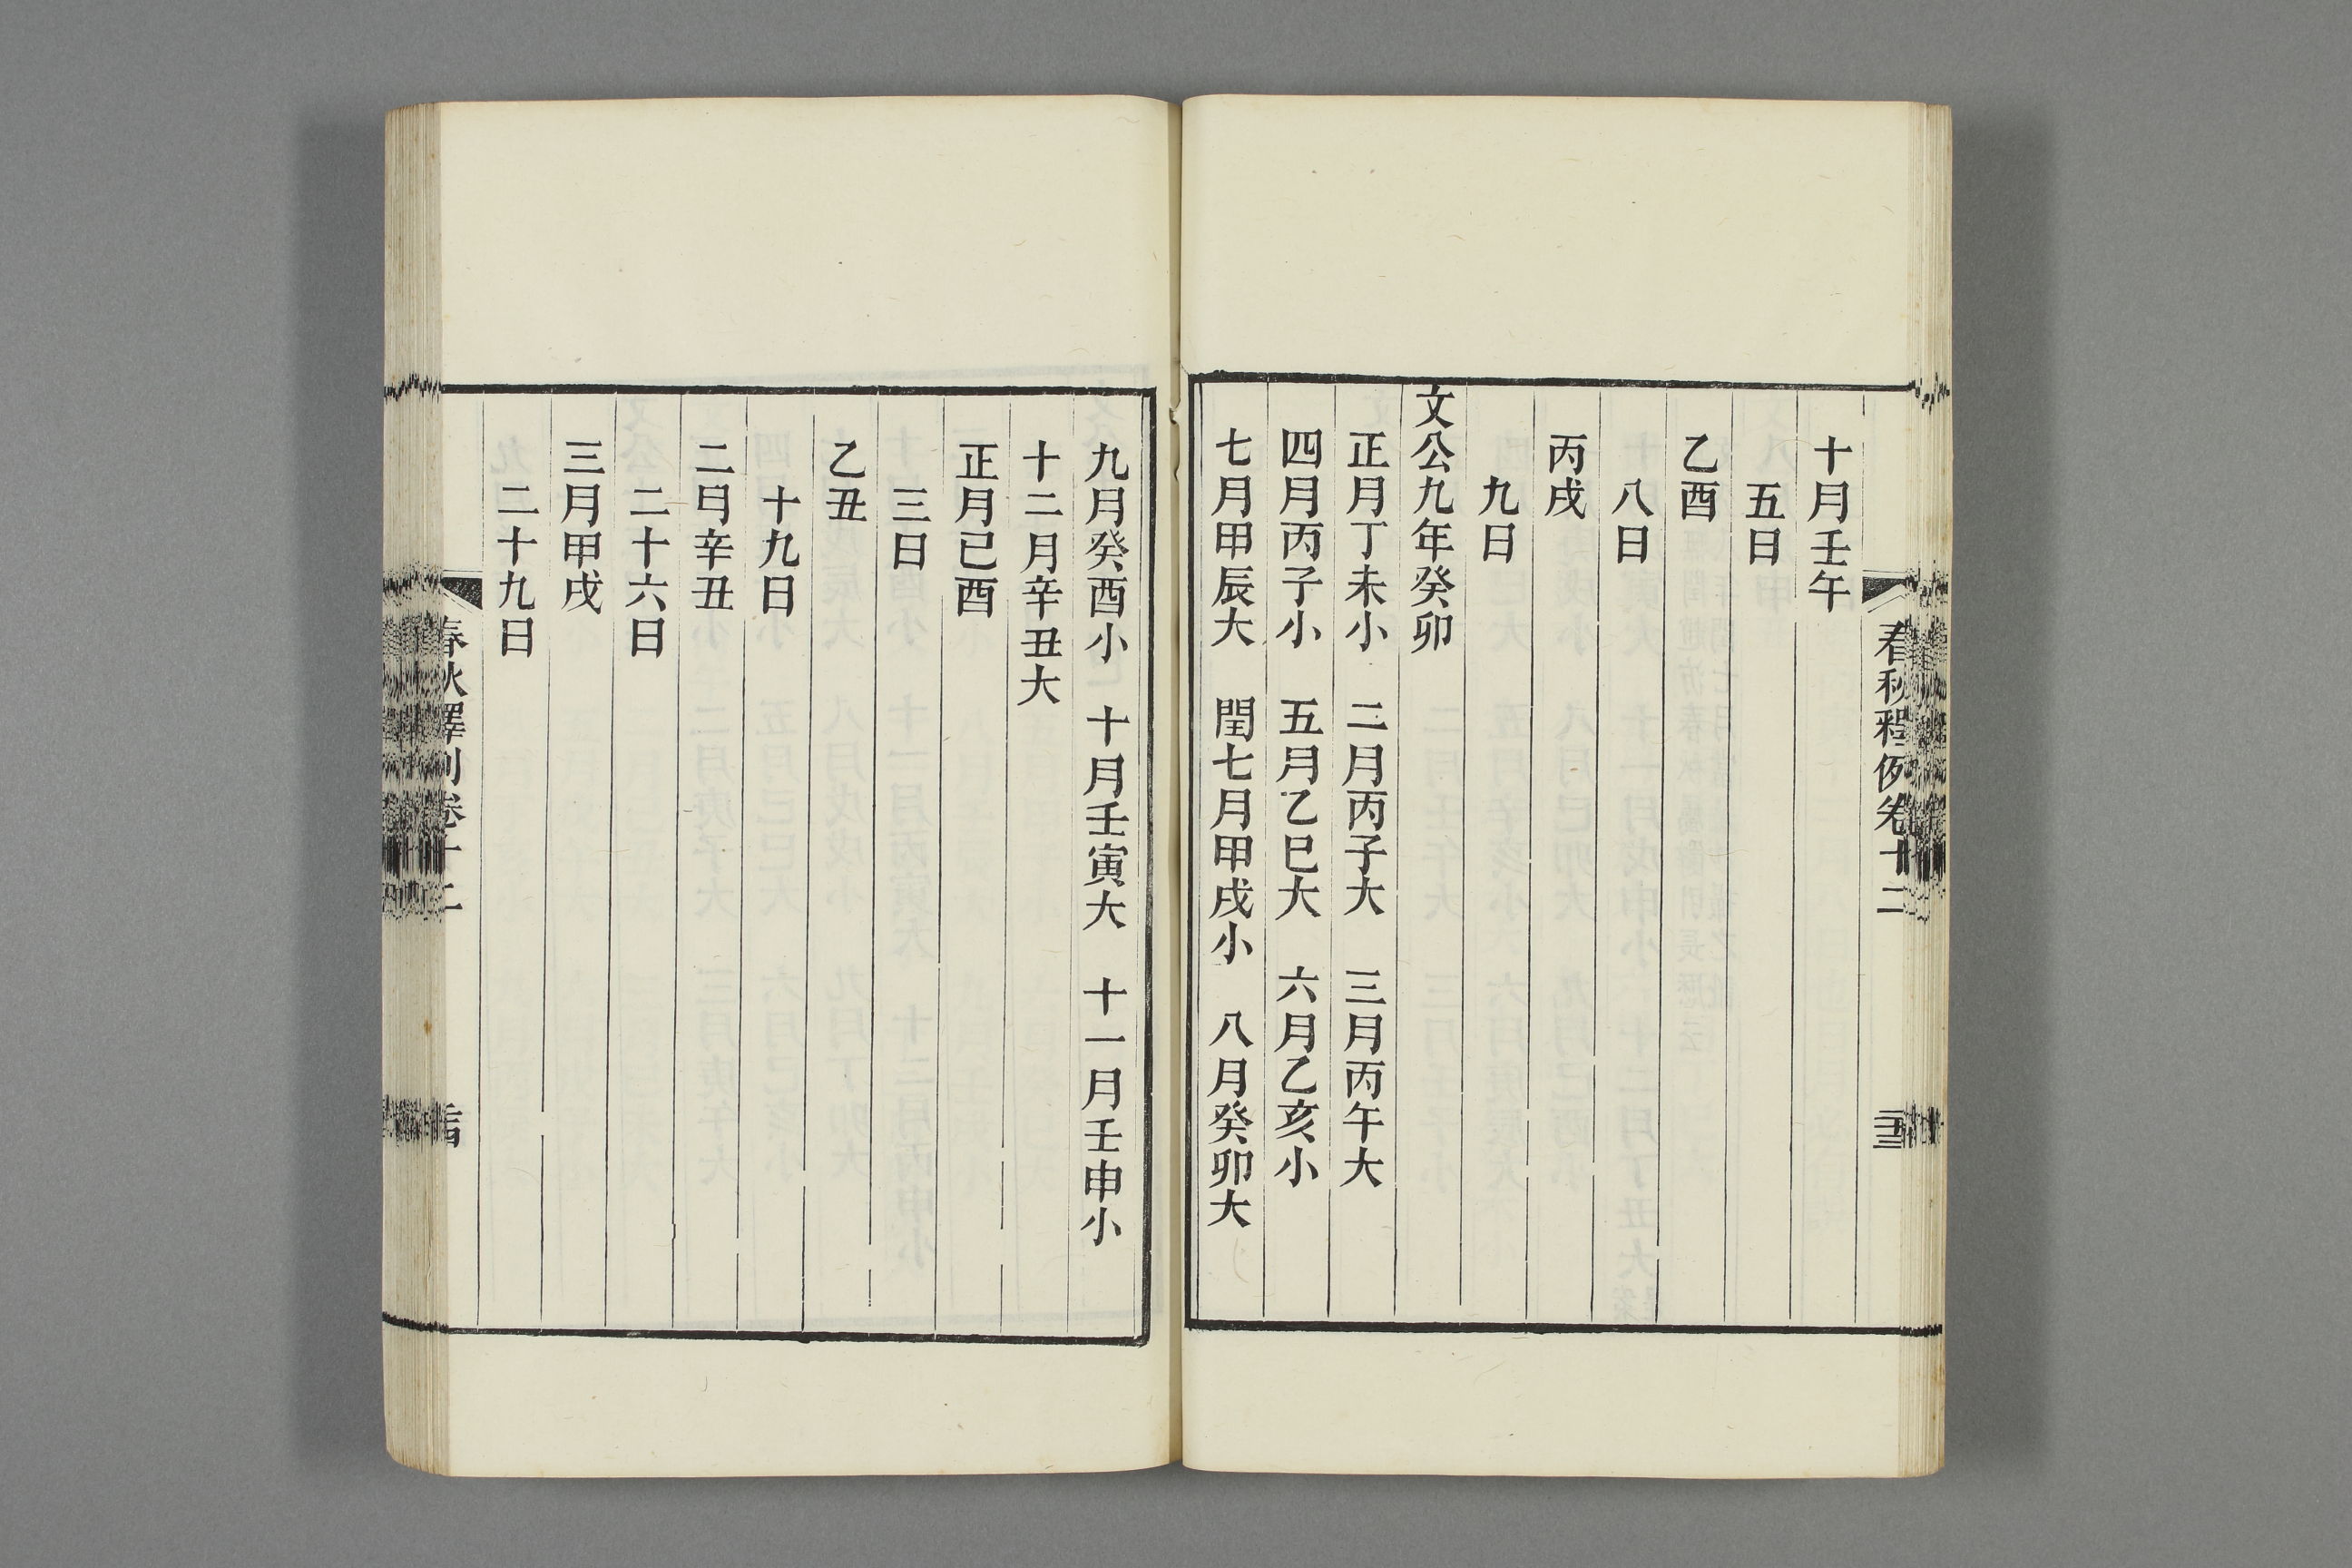 春秋釋例卷十二
十月壬午
五日
乙酉
八日
丙戌
九日
文公九年癸卯
正月丁未小 二月丙子大 三月丙午大
四月丙子小 五月乙巳大 六月乙亥小
七月甲辰大 閏七月甲戌小 八月癸卯大
九月癸酉小 十月壬寅大 十一月壬申小
十二月辛丑大
正月己酉
三日
乙丑
十九日
二月辛丑
二十六日
三月甲戌
二十九日
春秋釋例卷十二